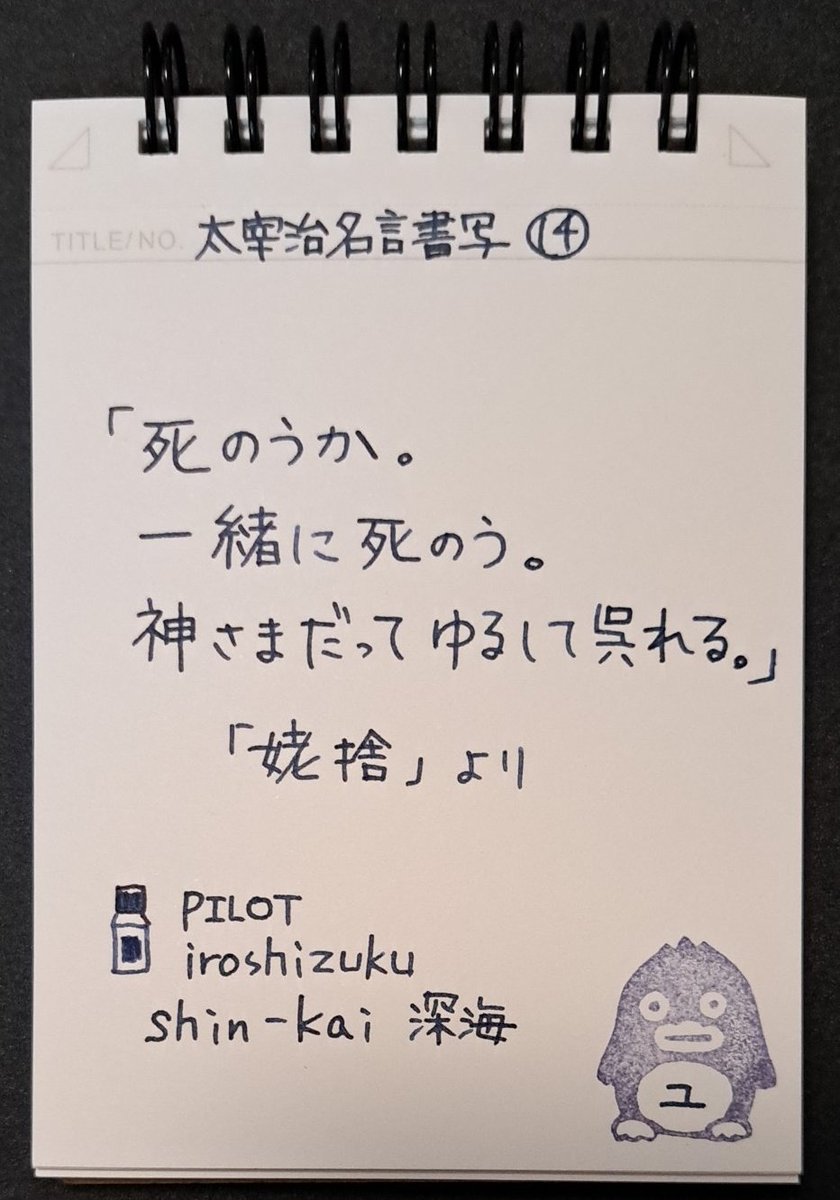 TITLE/NO. 太宰治名言書写 ⑭
「死のうか。
一緒に死のう。
神さまだってゆるして呉れる。」
「姥捨」より
PILOT
iroshizuku
shin-kai 深海
ユ